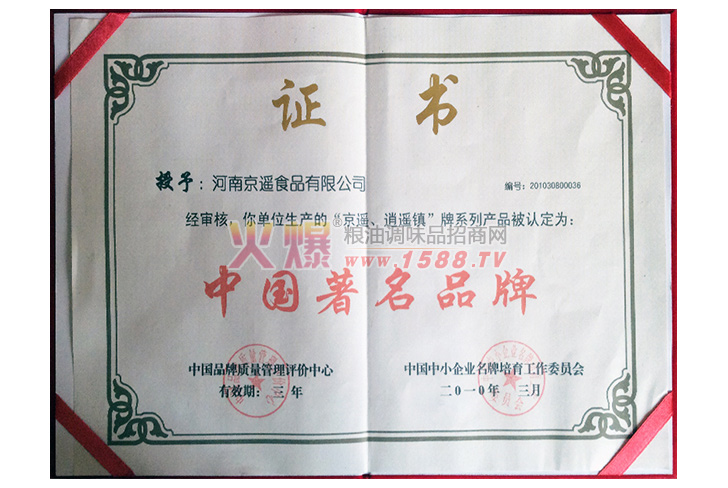 证书
授予：河南京遥食品有限公司
编号：201030800036
经审核，你单位生产的“京遥、逍遥镇”牌系列产品被认定为：
火爆 粮油调味品招商网
www.1588.TV
中国著名品牌
中国品牌质量管理评价中心
有效期：三年
中国中小企业名牌培育工作委员会
二0一0年 三月